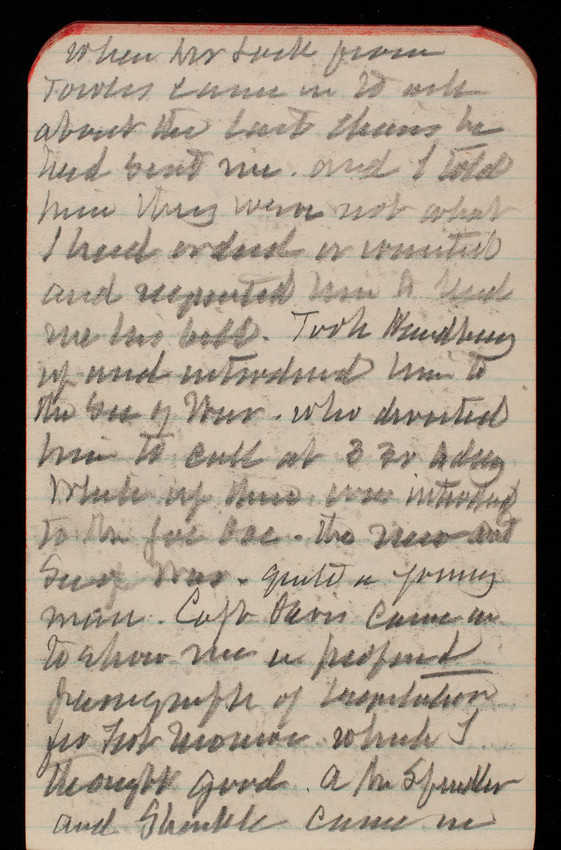 when Mr Lock from
Towles came in to ask
about the last chairs he
had sent me. and I told
him they were not what
I had ordered or wanted
and requested him to send
me his bill. Took
up and introduced him to
the Sec of War. who directed
him to call at 3 30 today
While up there was introduced
to Mr Joe Doe. the new Asst
Sec of War. quite a young
man. Capt Davis came in
to show me a proposed
paragraph of legislation
for Fort Monroe which I
thought good. a Mr
and came in